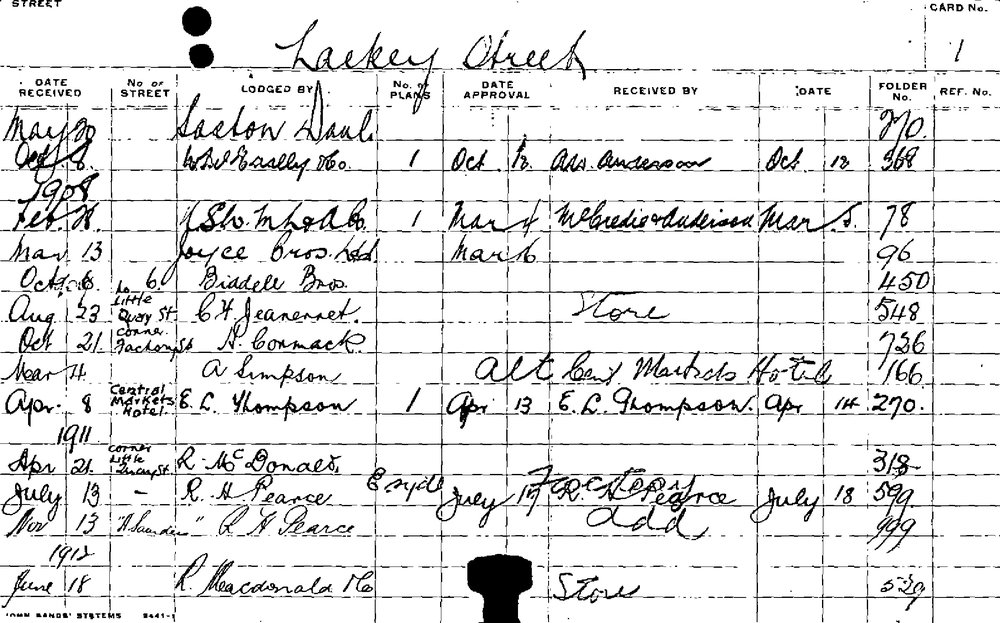 STREET CARD No.
Lackey Street 1
DATE RECEIVED No. of STREET LODGED BY No. of PLANS DATE APPROVAL RECEIVED BY DATE FOLDER No. REF. No.
May 20 Saxton 270
Oct 8 & Co. 1 Oct 12 Anderson Oct 12 368
1908
Feb. 1 Mar 4 McCredie & Anderson Mar 5. 78
Mar 13 Joyce Bros. Ltd Mar 16 96
Oct 8 6. Biddell Bros. 450
Aug 23 to Little Quay St C H Jeanerret. Store 548
Oct 21 corner St H. Cormack. 736
Mar 4 A Simpson Alt Cent Markets Hotel 166
Apr 8 Central Markets Hotel. E. L. Thompson 1 Apr 13 E. L. Thompson. Apr 14 270.
1911
Apr 21. corner Little Quay St. R. McDonald. 318
July 13 – R. H Pearce July 17 Factory R. H Pearce July 18 599
Nov 13 " R H Pearce add 999
1912
June 18 R. Macdonald & Co Store 529
JOHN SANDS' SYSTEMS